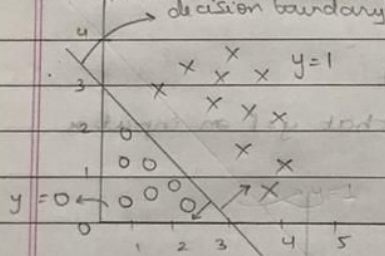 decision boundary
4
y=1
3
2
1
y=0
0
1 2 3 4 5